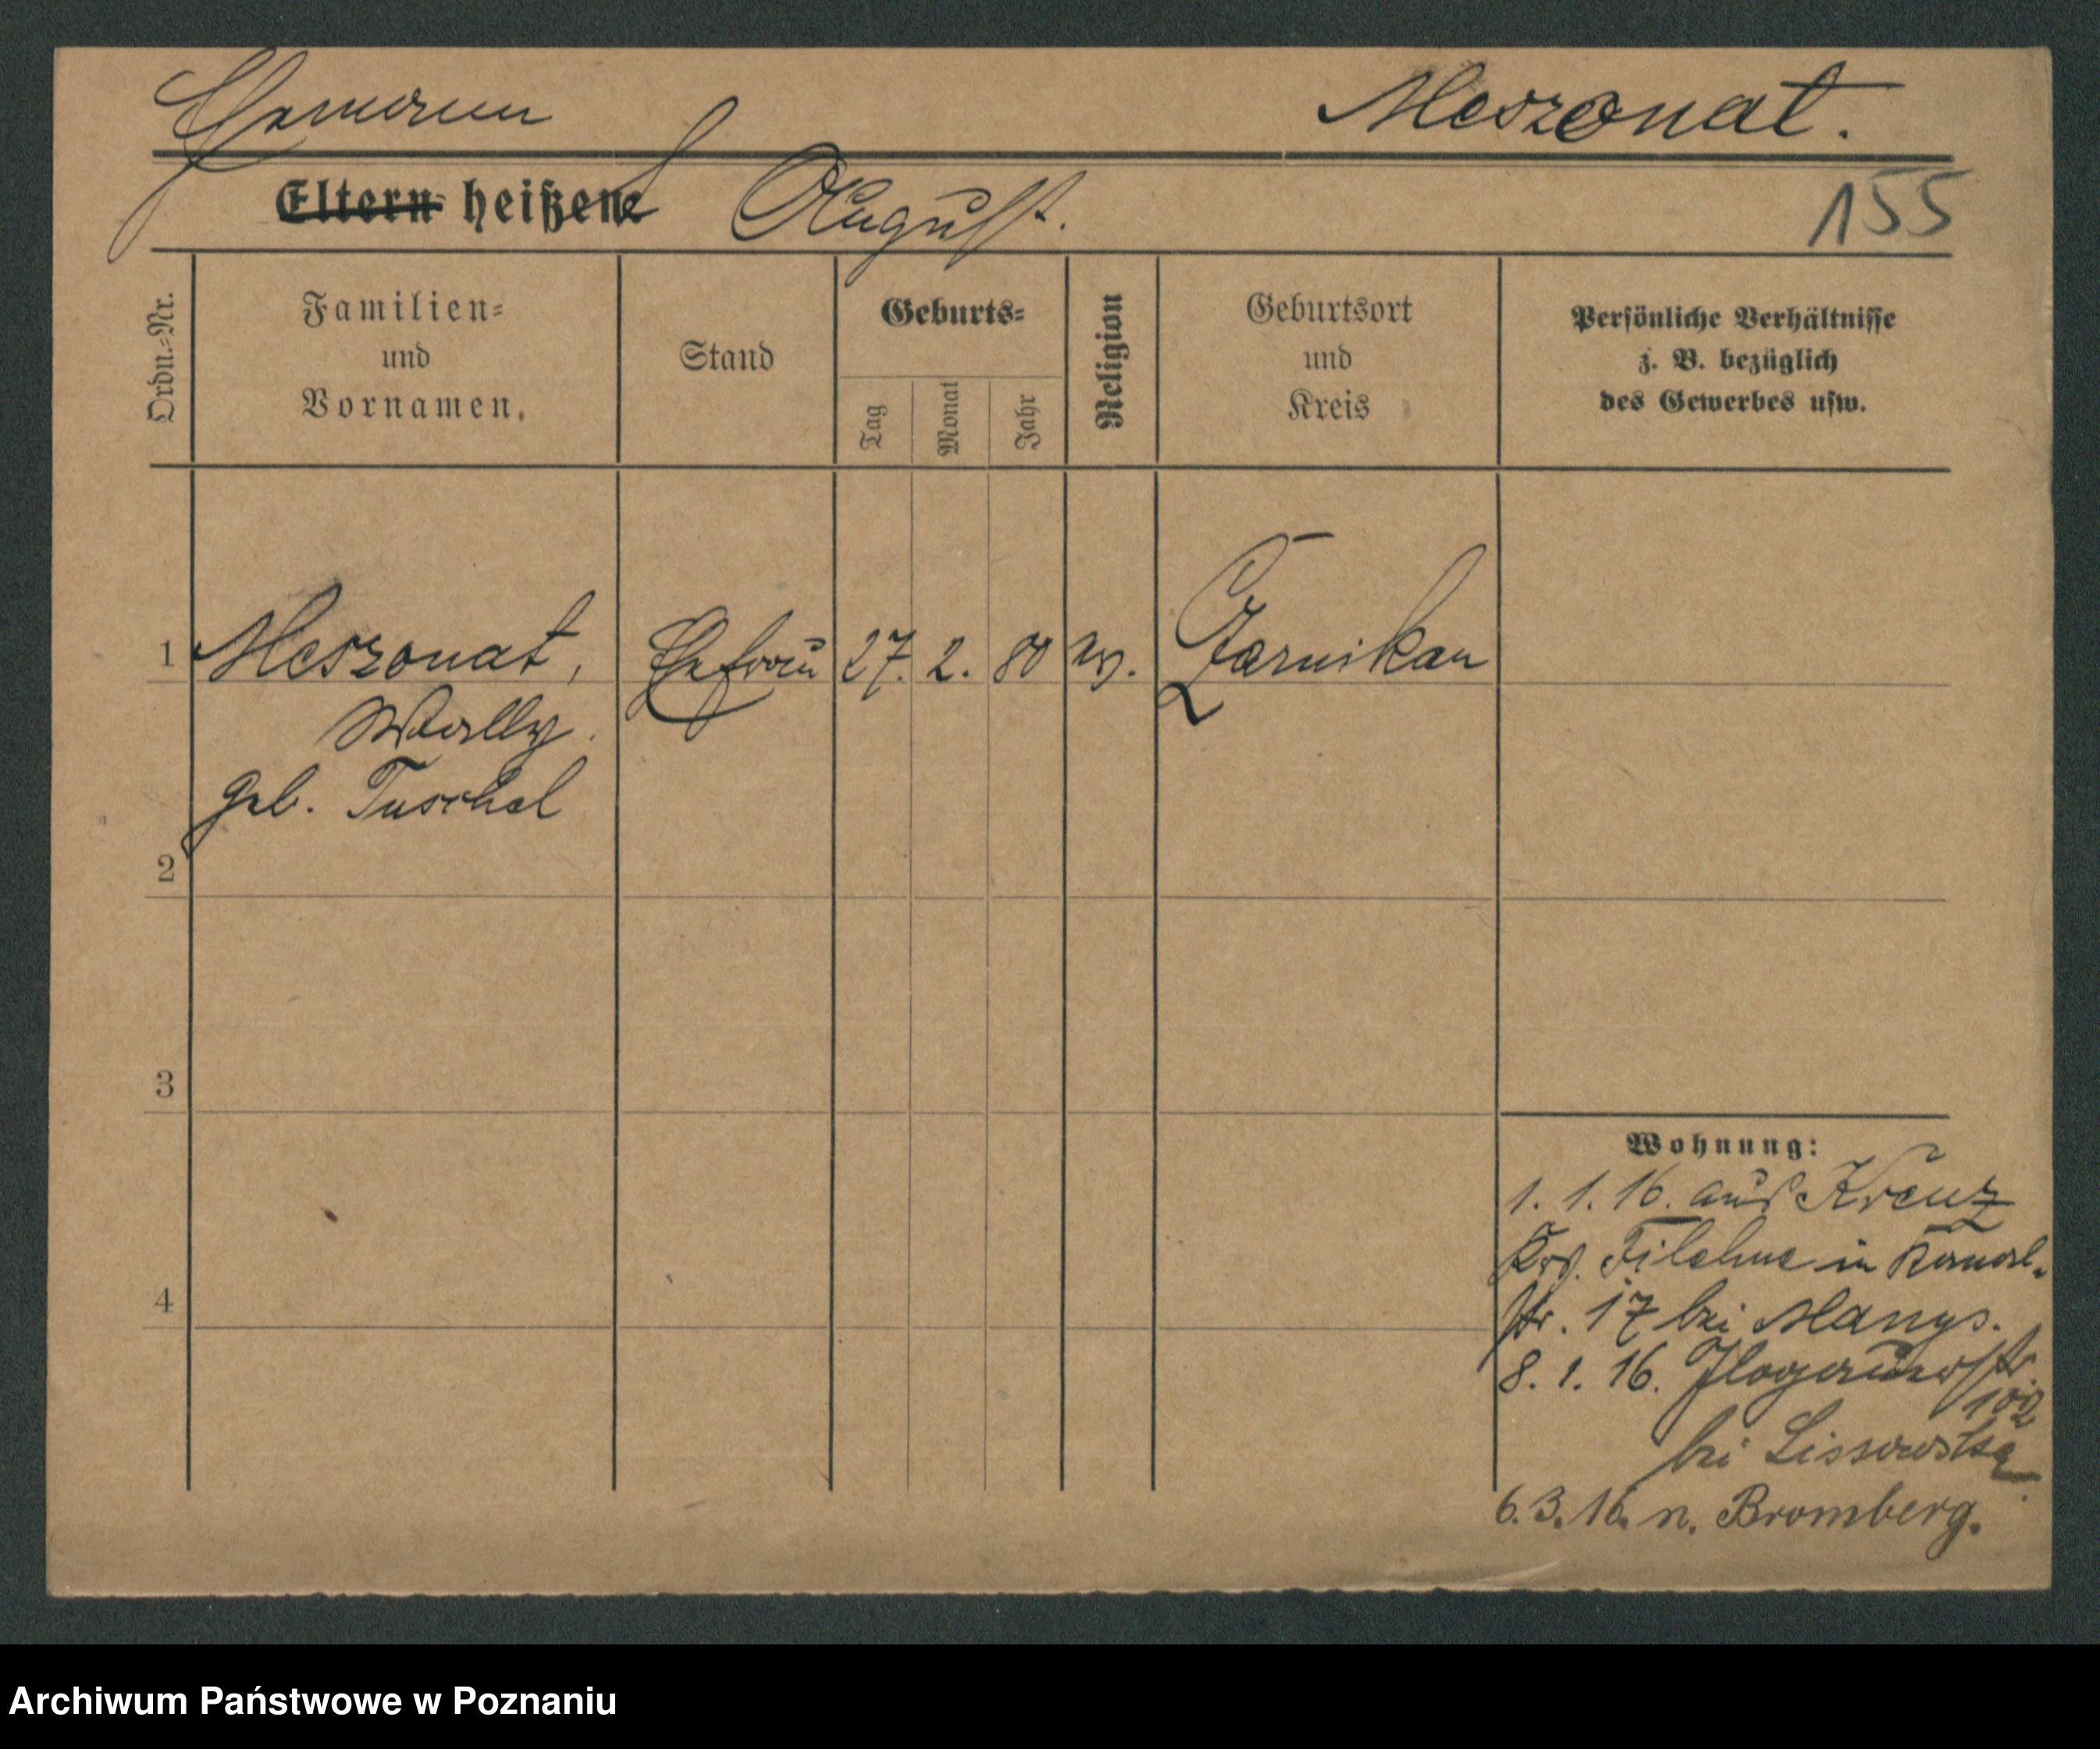 Ehemann Meszonat.
Eltern heißen August.
155
Ordn.-Nr.
Familien-
und
Vornamen.
Stand
Geburts-
Tag
Monat
Jahr
Religion
Geburtsort
und
Kreis
Persönliche Verhältnisse
z. B. bezüglich
des Gewerbes usw.
1 Meszonat, Ehefrau 27. 2. 80 ev. Czarnikau
Wally.
geb. Tuschel
2
3
4
Wohnung:
1. 1. 16. aus Kreuz
Krs. Filehne in Kanal-
str. 17 bei Manys.
8. 1. 16. Glogauerstr.
102
bei Lissowska.
6. 3. 16. n. Bromberg.
Archiwum Państwowe w Poznaniu